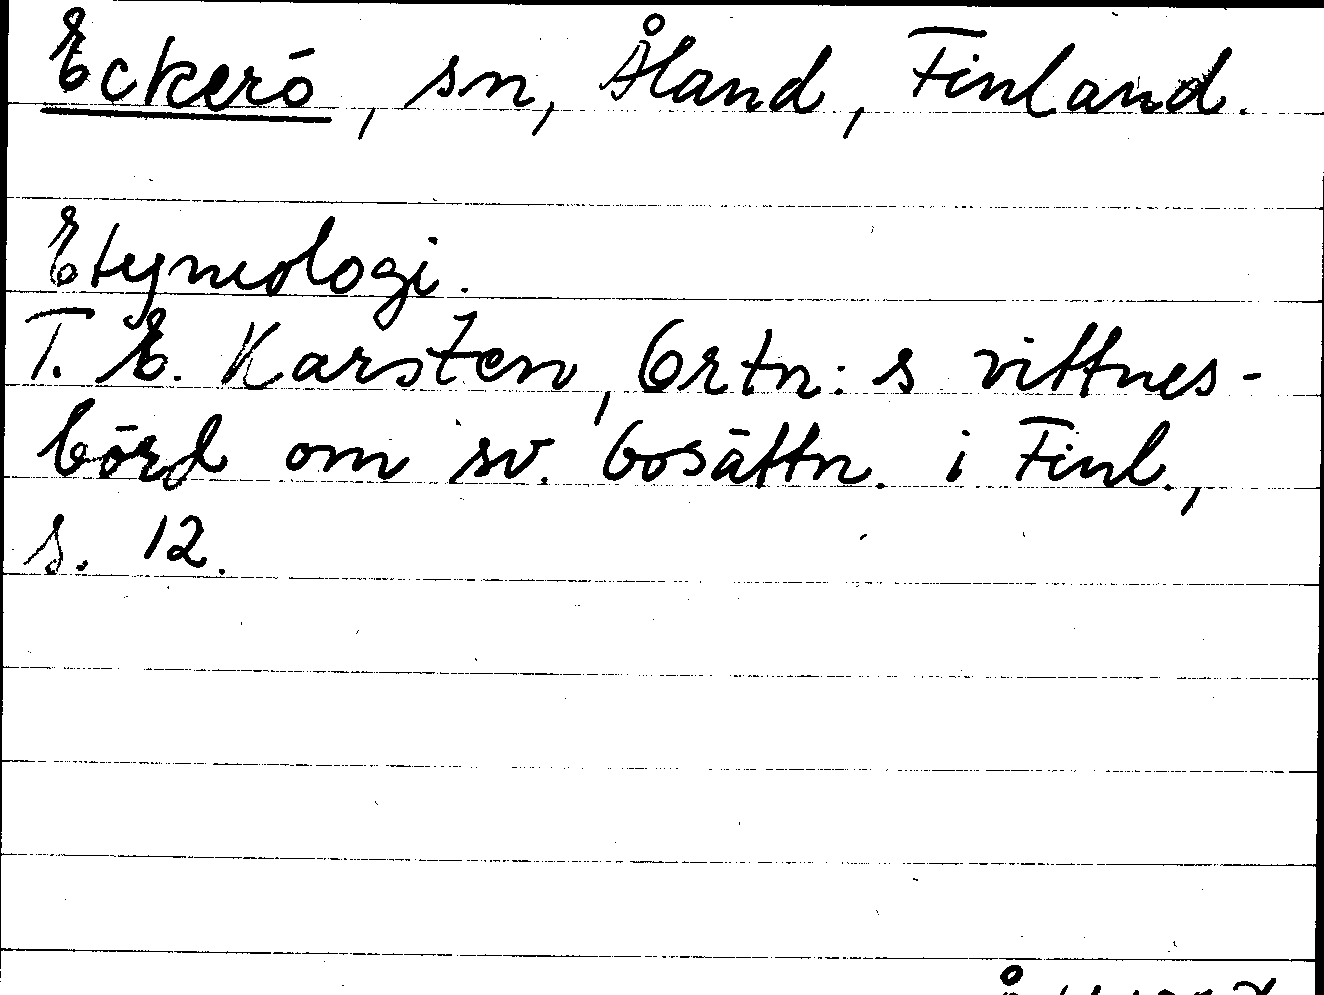 Eckerö, sn, Åland, Finland.
Etymologi.
T. E. Karsten, Ortn:s vittnes-
börd om sv. bosättn. i Finl.,
s. 12.